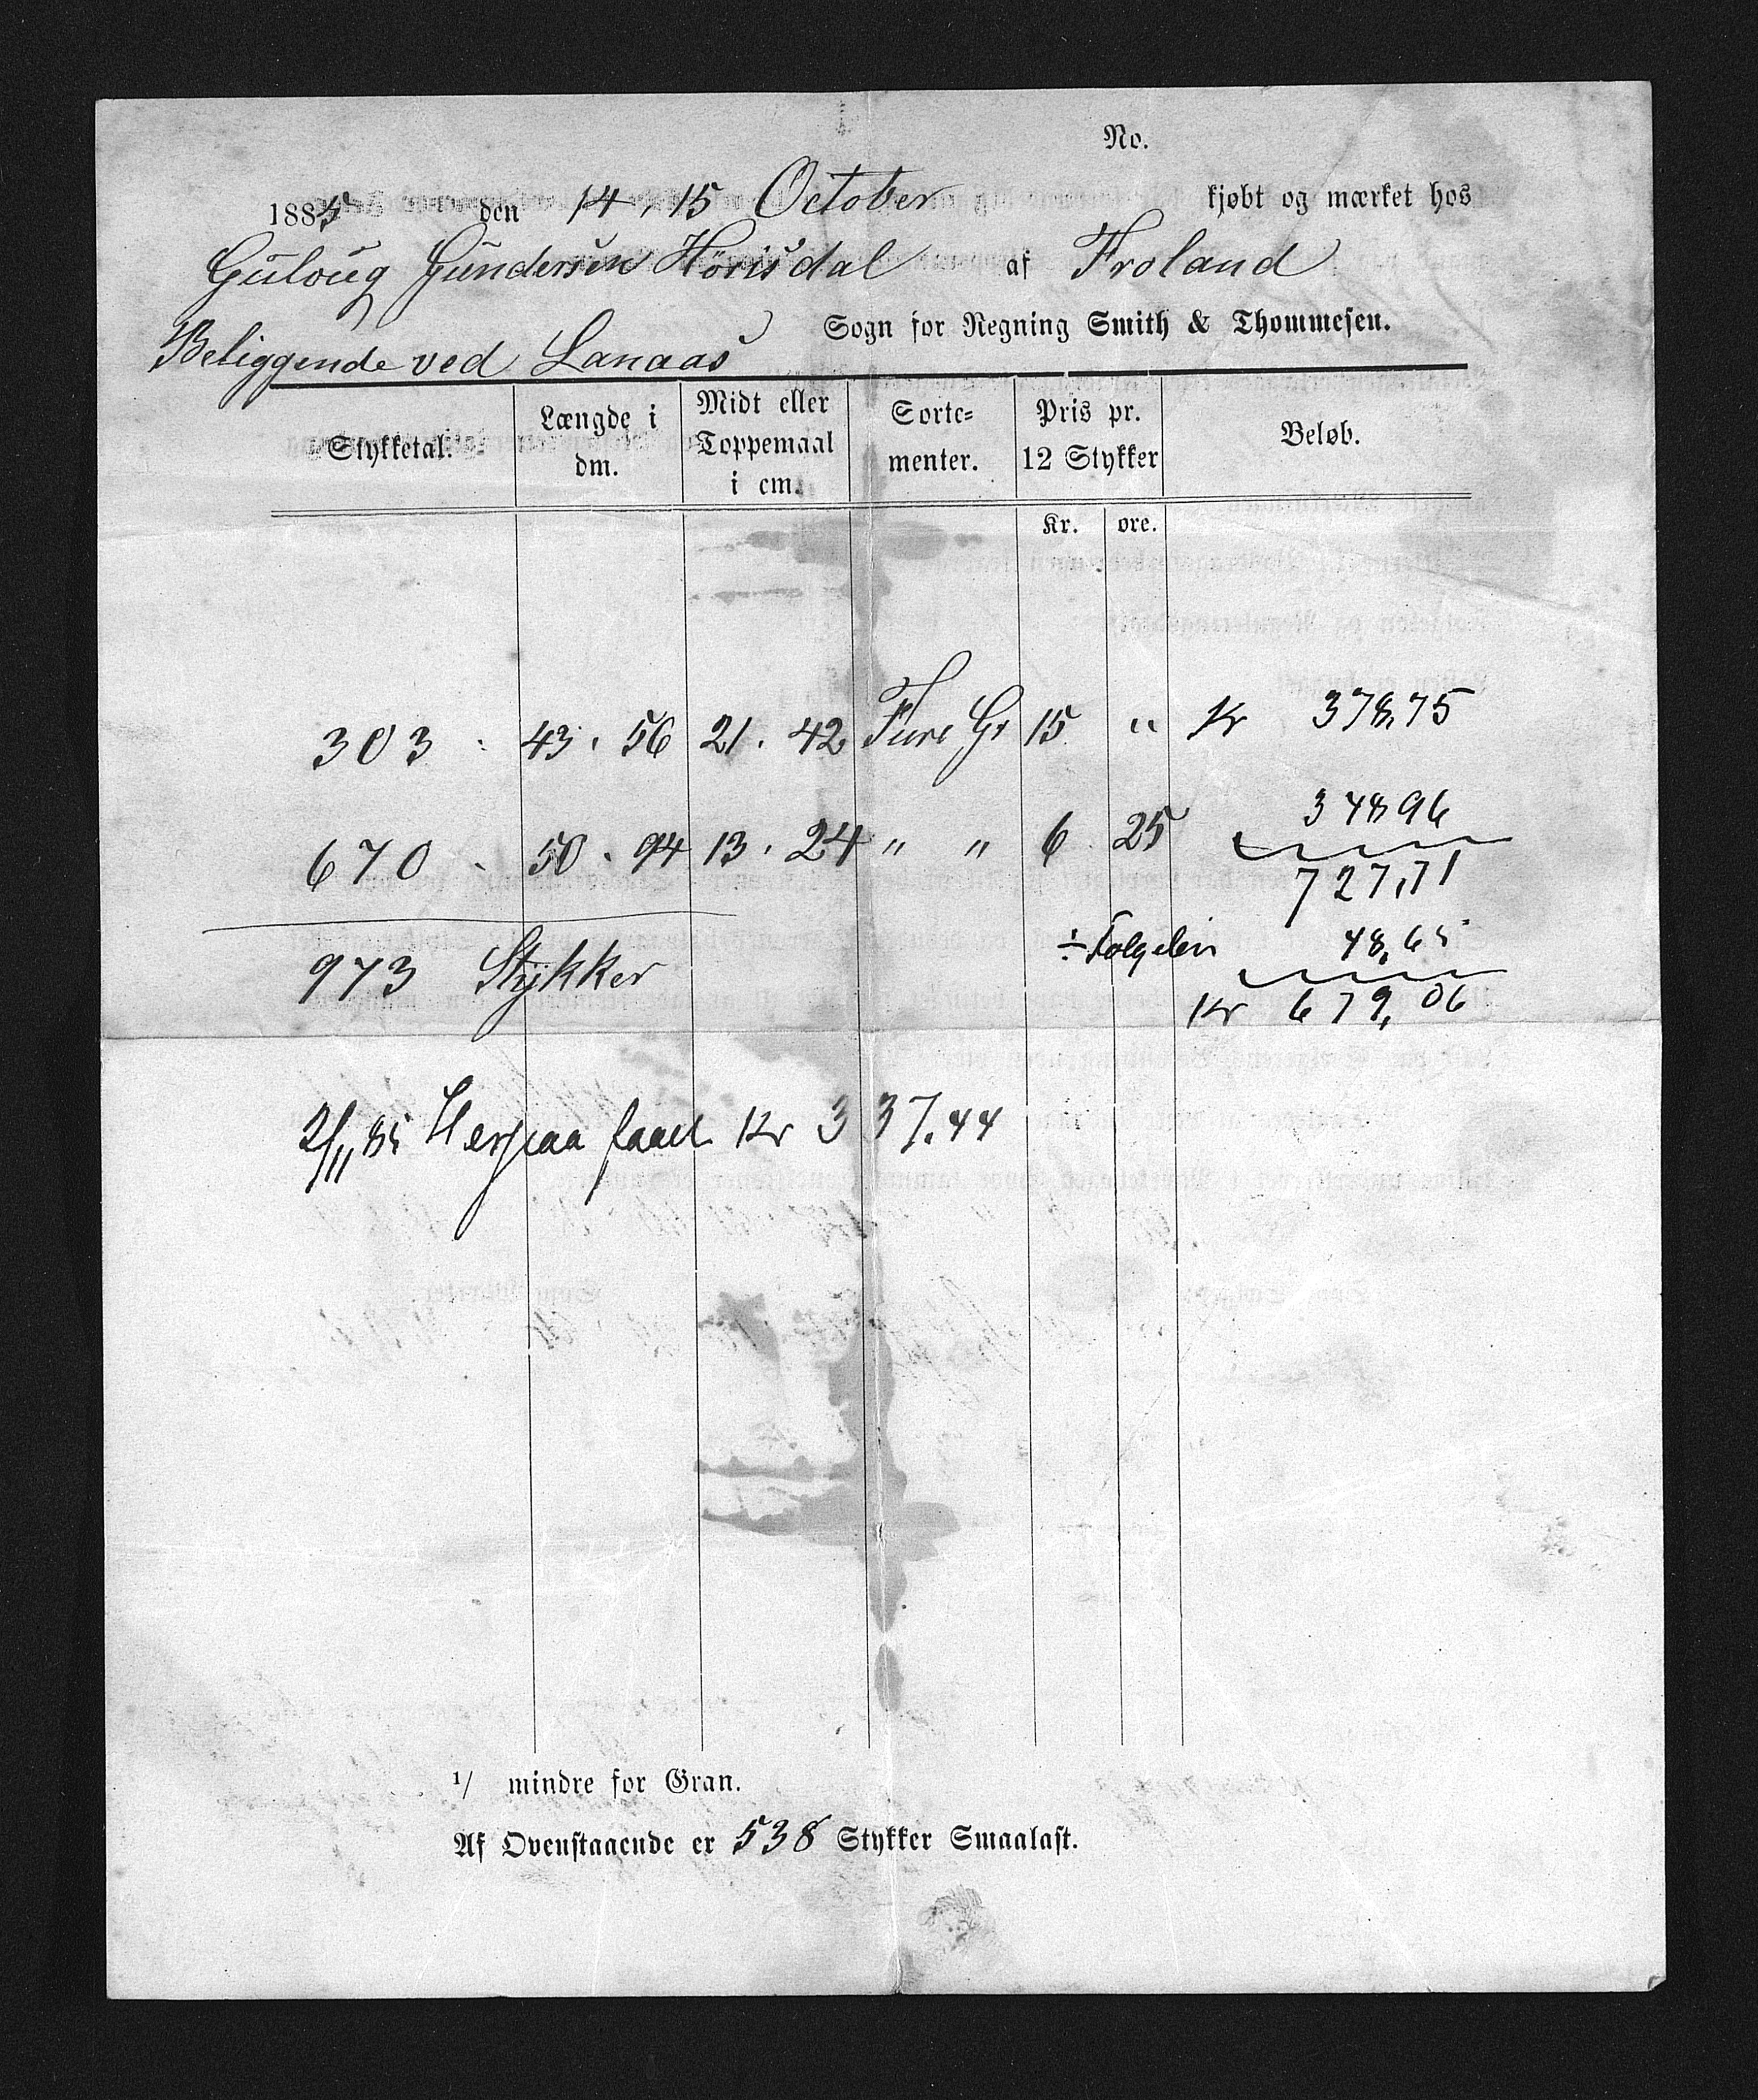 No.
1885 den 14, 15 October kjøbt og mærket hos
Guloug Gundersen Hörisdal af Froland
Sogn for Regning Smith & Thommesen.
Beliggende ved Lanaas
Stykketal. Længde i dm. Midt eller Toppemaal i cm. Sorte=menter. Pris pr. 12 Stykker Beløb.
Kr. øre.
303 . 43 . 56 21 . 42 Furu Gr 15 " Kr 378,75
670 . 50 . 94 13 . 24 " " 6 25 348 96
727,71
973 Stykker ÷ Følgelön 48,65
Kr 679,06
2/11 85 Herpaa faaet Kr 337.44
1/ mindre for Gran.
Af Ovenstaaende er 538 Stykker Smaalast.